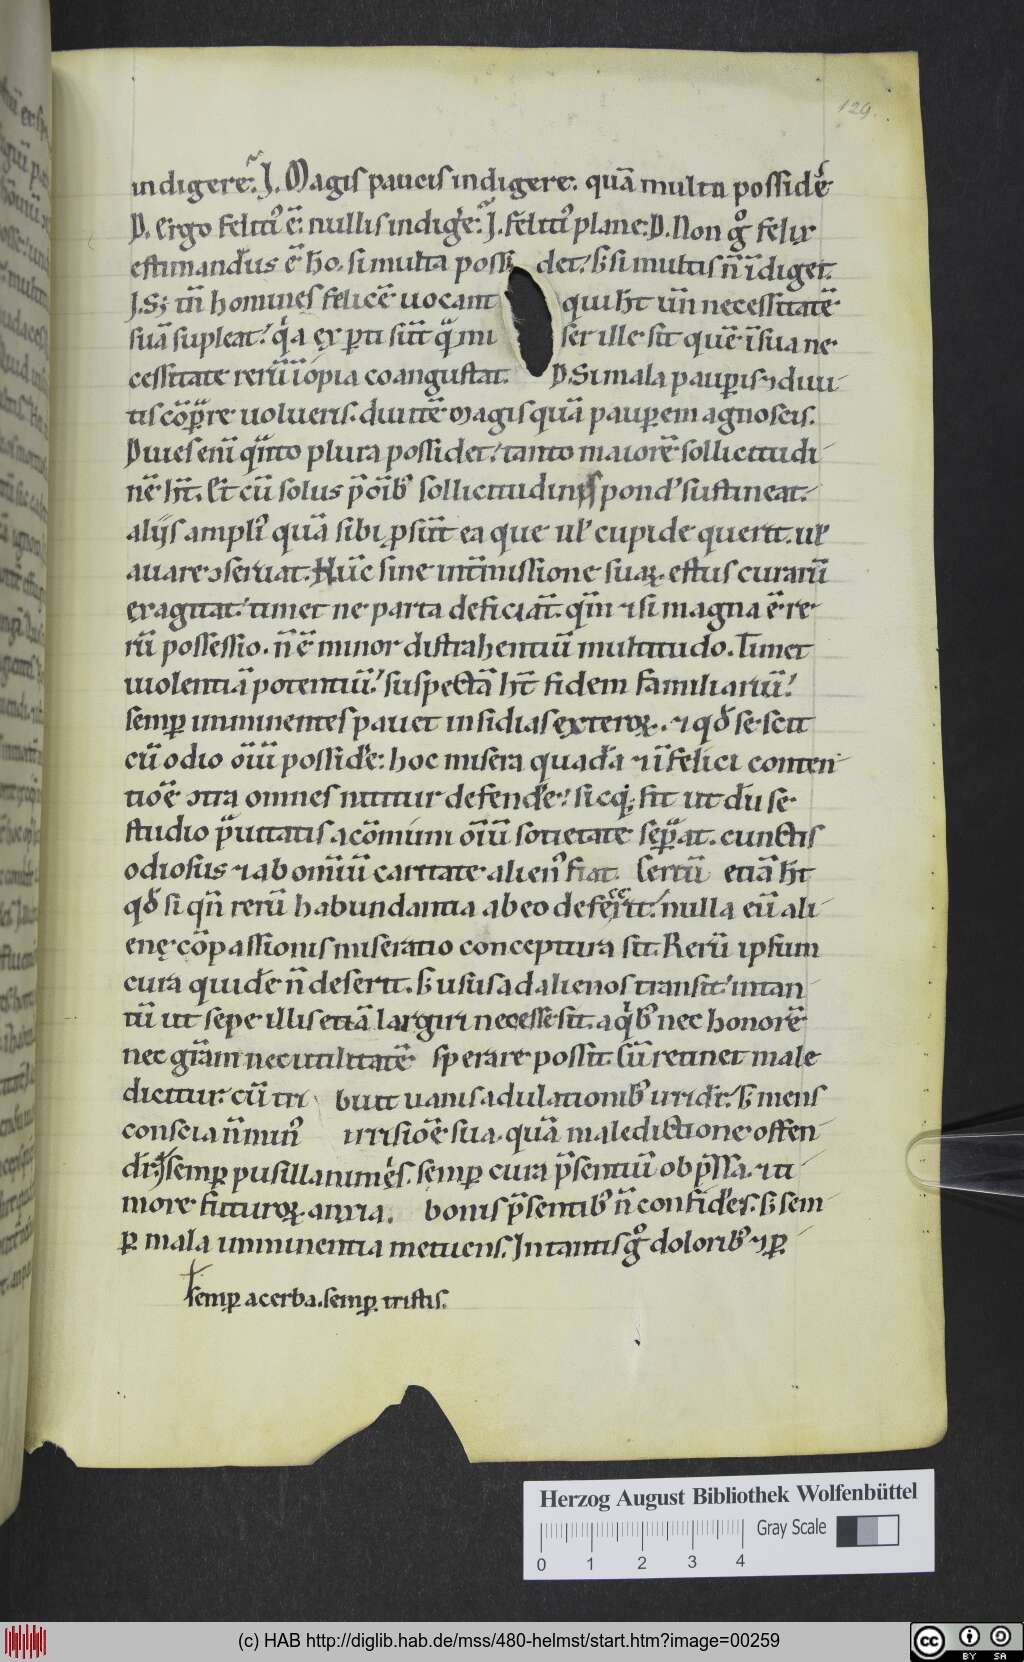 129.
indigere. I. Magis paucis indigere. quā multa possidē
D. Ergo felicī ē. nullis indigē. I. felicī plane. D. Non g° felix
estimandus ē ho. si multa possi det. s; si multis ñ īdiget.
I. S; tñ homines felicē uocant qui ht̄ uñ necessitatē
suā supleat. qᵃa ex parti sūt q̄ mi ser ille sit quē ī sua ne
cessitate rerū īopia coangustat. D. Si mala pauꝑis ⁊ diui
tis cōꝑare uolueris. diuitē magis quā pauꝑem agnoscis.
Diues enī q̄nto plura possidet. tanto maiorē sollicitudi
nē ht̄. Et cū solus p̄ oībꝰ sollicitudinis pondꝰ sustineat.
alijs amplꝰ quā sibi ꝓsūt ea que uł cupide querit. uł
auare ɔseruat. Hūc sine int̄missione suaꝝ estus curarū
exagitat. timet ne parta deficiāt. qm̄ ⁊ si magna ē re
rū possessio. ñ ē minor distrahentiū multitudo. Timet
uiolentiā potentiū. suspectā ht̄ fidem familiariū.
semꝑ imminentes pauet insidias exteroꝝ. ⁊ qđ se scit
cū odio oīū possidē. hoc misera quadā ⁊ īfelici conten
tiōe ɔtra omnes nititur defendē. sicq; fit ut dū se
studio p̄uitatis a cōmuni oīū societate seꝑat. cunctis
odiosus ⁊ ab omīū caritate alienꝰ fiat. Certū etiā ht̄
qđ si qñ rerū habundantia ab eo defecerit. nulla eū ali
enę cōpassionis miseratio conceptura sit. Rerū ipsum
cura quidē ñ deserit. s; usus ad alienos transit. intan
tū ut sepe illis etiā largiri necesse sit. a qⁱbꝰ nec honorē
nec grām nec utilitatē sperare possit. Cū retinet male
dicitur. cū tri buit uanis adulationibꝰ iridēt. s; mens
conscia ñ minꝰ irrisiōe sua. quā maledictione offen
dit. semꝑ pusillanimis. semꝑ cura p̄sentiū obp̄ssa. ⁊ ti
more futuroꝝ anxia. bonis p̄sentibꝰ ñ confidēs. s; sem
ꝑ mala imminentia metuens. In tantis g° doloribꝰ ⁊ ꝑ
semꝑ acerba. semꝑ tristis.
Herzog August Bibliothek Wolfenbüttel
Gray Scale
0 1 2 3 4
(c) HAB http://diglib.hab.de/mss/480-helmst/start.htm?image=00259
cc BY SA